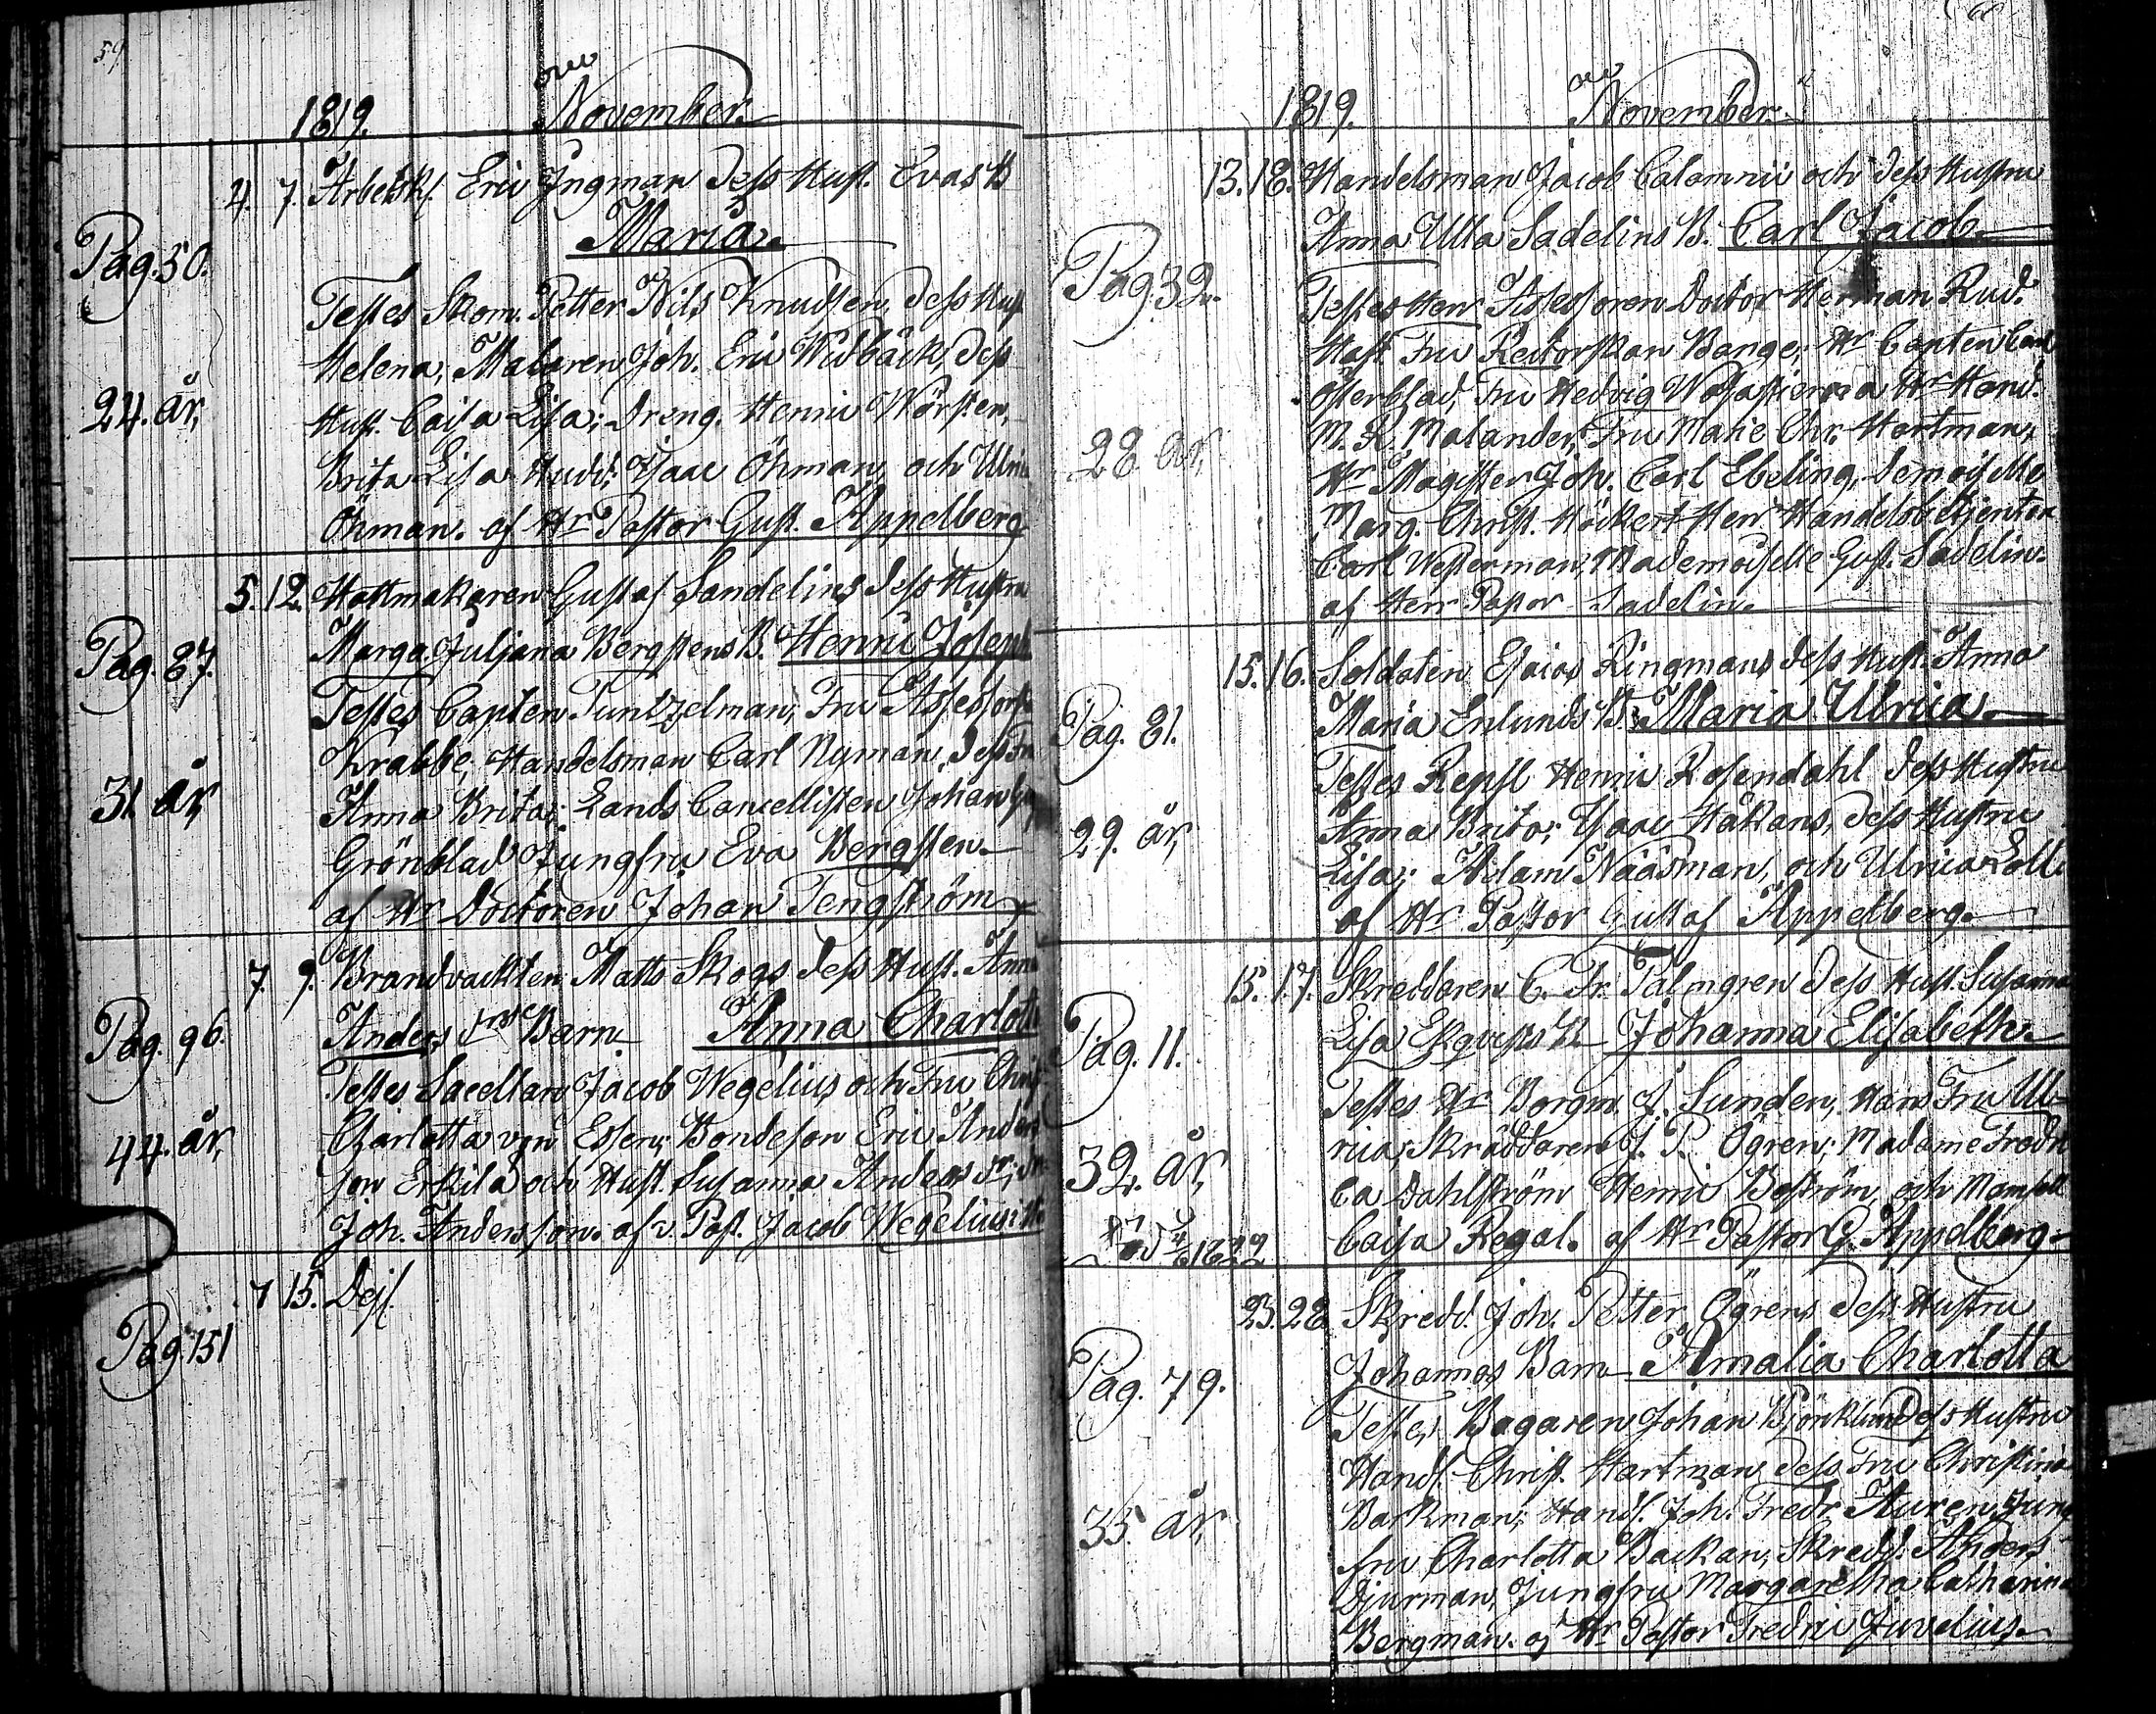 59
1819. November.
4. 7. Arbetsk. Eric Ingman dess Hust. Evas B
Maria.
Pag. 50.
Testes Skom. Petter Nils Knutsen, dess Hust
Helena, Malaren Joh. Eric Widbäck, dess
24. år,
Hust. Caisa Lisa; Dreng. Henric Wörsten,
Brita Lisa Hudd; Isaac Öhman, och Ulrica
Öhman. af Hr Pastor Gust. Appelberg
5. 12. Hattmakaren Gustaf Sandelins dess Hustru
Marga. Juliana Bergstens B. Henric Joseph
Pag. 87.
Testes Capten Tuntzelman, Fru Assessorsk
Krabbe, Handelsman Carl Nyman, dess Fru
31 år,
Anna Brita; Lands Cancellisten Johan
Grönblad Jungfru Eva Bergsten.
af Hr Doctoren Johan Tengström
7. 9. Brandvackten Matts Skogs dess Hust. Anna
Anders Barn Anna Charlotta
Pag. 96.
Testes Sacellan Jacob Wegelius och Fru Christ
Charlotta von Essen; Bondeson Eric Anders
44. år,
son Erkila och Hust. Susanna Anders
Joh. Andersson. af v. Past. Jacob Wegelius:
7 15. Des.
Pag. 151
1819. November.
13. 18. Handelsman Jacob Calamnii och dess Hustru
Anna Ulla Sadelins B. Carl Jacob.
Pag. 32.
Testes Herr Assessoren Doctor Herman Rud.
Hast. Fru Rectorskan Bange; Hr Capten Carl
Österblad, Fru Hedvig Wasastierna Hr Hand.
M. K. Malander, Fru Marie Chr. Hartman;
28 år,
Hr Magister Joh. Carl Ebeling, Demoiselle
Marg. Christ. Höckert Herr Handelsbetjenten
Carl Westerman, Mademoiselle Gust. Sadelin.
af Herr Pastor Sadelin.
15. 16. Soldaten Esaias Ringmans dess Hust. Anna
Maria Enlunds B. Maria Ulrica.
Pag. 81.
Testes Repsl Henric Rosendahl dess Hustru
Anna Brita; Isaac Håkans, dess Hustru
29. år,
Lisa; Adam Nääsman, och Ulrica Lolla
af Hr Pastor Gustaf Appelberg.
15. 17. Skreddaren C. Fr. Palmgren dess Hust. Susanna
Lisa Ekqvists B Johanna Elisabeth.
Pag. 11.
Testes Hr Borgm. J. Sunden, Hans Fru Ul-
rica; Skräddaren J. P. Ögren; Madame Fredri
32. år,
ca Dahlström Henric Boström, och Mamsell
Caisa Regal. af Hr Pastor G. Appelberg.
23. 28 Skredd. Joh. Petter Ögrens dess Hustru
Johannas Barn Amalia Charlotta
Pag. 79.
Testes Bagaren Johan Björklund dess Hustru
Handl. Christ. Hartman, dess Fru Christina
Barkman; Handl. Joh. Fredr. Auren, Jung
35. år,
fru Charlotta Backan, Skredd. Anders
Djurman, Jungfru Margaretha Catharina
Bergman. af Hr Pastor Fredric Juvelius.